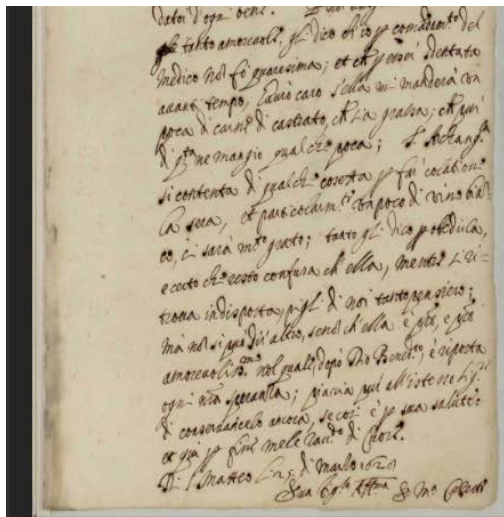 dator d'ogni bene.
tanto amorevoli, gli dico ch'io p comandam.to del
medico nõ fò quaresima; et ch p esser sdentata
avanti tempo, havrò caro s'ella mi manderà un
poca di carne di castrato, ch sia grassa; ch pur
di q.ta ne mangio qualche poca; S. Archang.la
si contenta di qualche cosetta p far colatione
la sera, et particolarm.te un poco di vino bian
co, ci sarà m.to grato; tanto gli dico p obedirla,
e certo che resto confusa ch'ella, mentre si ri=
trova indisposta, pigli di noi tanto pensiero;
mà nõ si può dir altro, senõ ch'ella è p̃re, e p̃re
amorevoliss.mo nel quale, dopò Dio Bened.to, è riposta
ogni n̄ra speranza; piaccia pur all'istesso Sig.re
di conservarcelo ancora, se così è p sua salute:
et qui p fine me le racc.do di cuore.
Di S. Matteo li di Marzo
Sua fig.la Aff.ma S. M.a Celeste